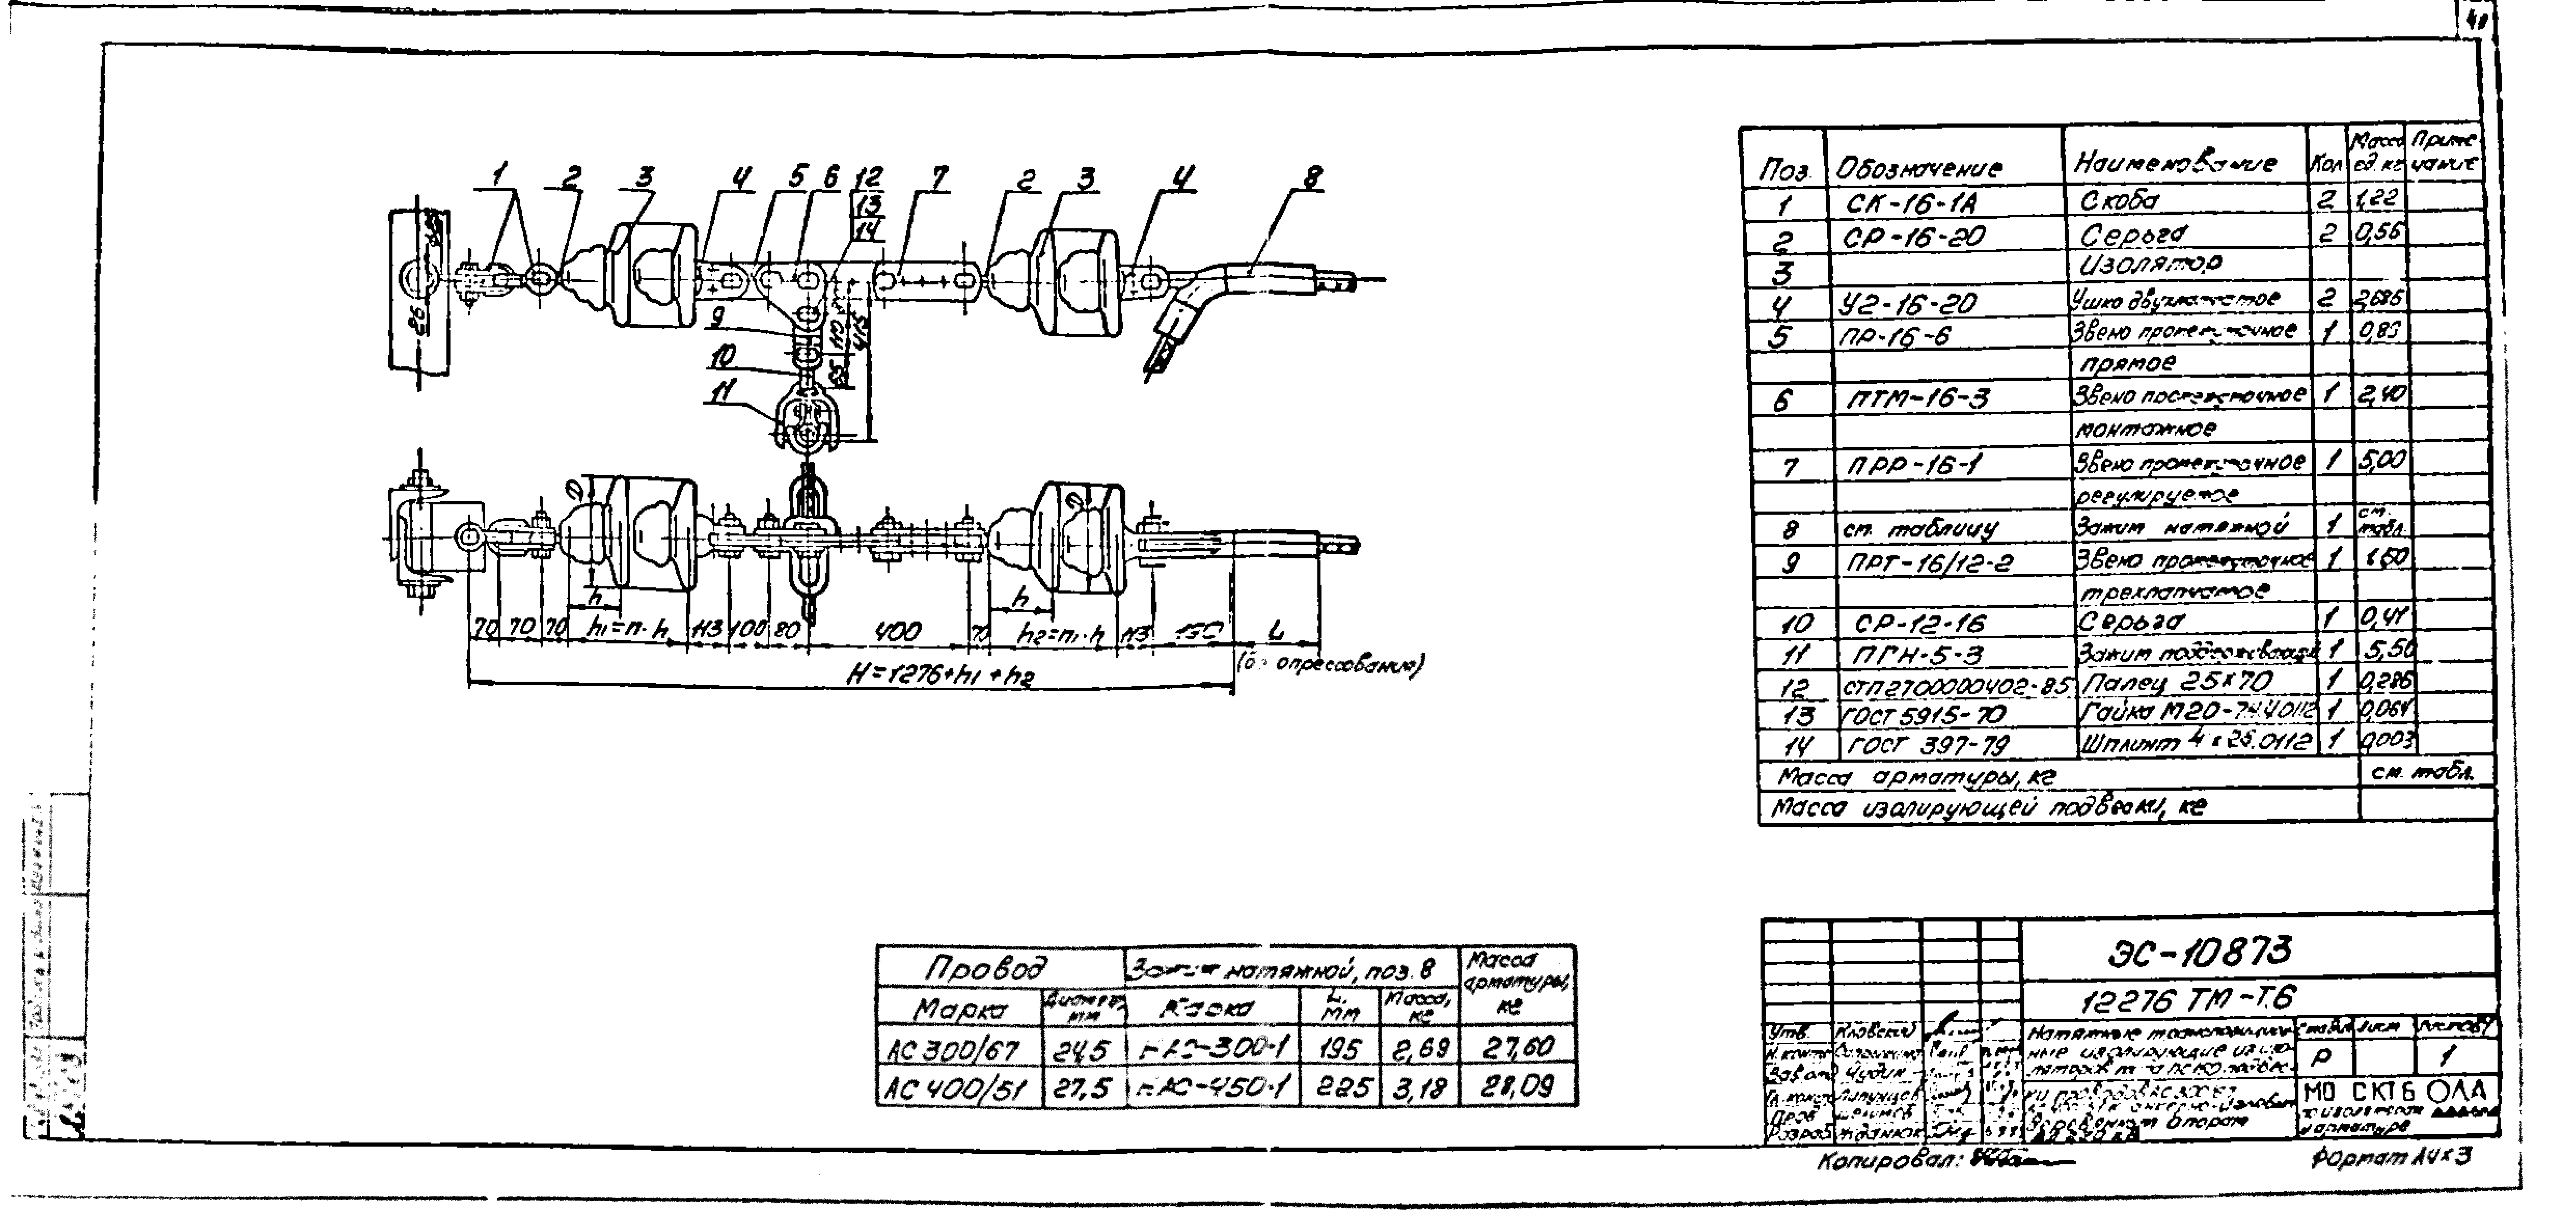 40
1 2 3 4 5 6 12 7 2 3 4 8
13
14
26
9
10
11
110
65
415
D D
h h
70 70 70 h1=n·h 113 100 80 400 70 h2=n1·h 113 150 L
H=1276+h1+h2 (до опрессования)
Поз. Обозначение Наименование Кол Масса ед. кг Примечание
1 СК-16-1А Скоба 2 1,22
2 СР-16-20 Серьга 2 0,56
3 Изолятор
4 У2-16-20 Ушко двухлапчатое 2
5 ПР-16-6 Звено промежуточное 1
прямое
6 ПТМ-16-3 Звено промежуточное 1 2,40
монтажное
7 ПРР-16-1 Звено промежуточное 1 5,00
регулируемое
8 см. таблицу Зажим натяжной 1 см. табл
9 ПРТ-16/12-2 Звено промежуточное 1
трехлапчатое
10 СР-12-16 Серьга 1 0,41
11 ПГН-5-3 Зажим поддерживающий 1 5,50
12 СТП2700000402-85 Палец 25х70 1 0,286
13 ГОСТ 5915-70 Гайка М20-7Н.40112 1 0,064
14 ГОСТ 397-79 Шплинт 1 0,003
Масса арматуры, кг см. табл.
Масса изолирующей подвески, кг
Провод Зажим натяжной, поз. 8 Масса арматуры, кг
Марка Диаметр, мм Марка L, мм Масса, кг
АС 300/67 24,5 НАС-300-1 195 2,69 27,60
АС 400/51 27,5 НАС-450-1 225 3,18 28,09
ЭС-10873
12276 ТМ-Т.6
Утв. Кловский
Н.контр
Зав.отд Чудик
Гл.конст Липунцов
Пров
Разраб Жданюк
Натяжные
ные изолирующие
Стадия Лист Листов
Р 1
МО СКТБ ОЛА
по изоляторам
и арматуре
Копировал:
Формат А4х3